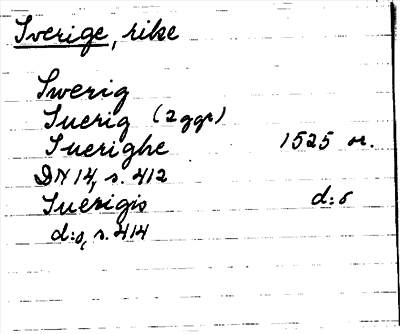 Sverige, rike
Swerig
Suerig (2 ggr)
Suerighe 1525 or.
DN 14, s. 412
Suerigis d:o
d:o, s. 414